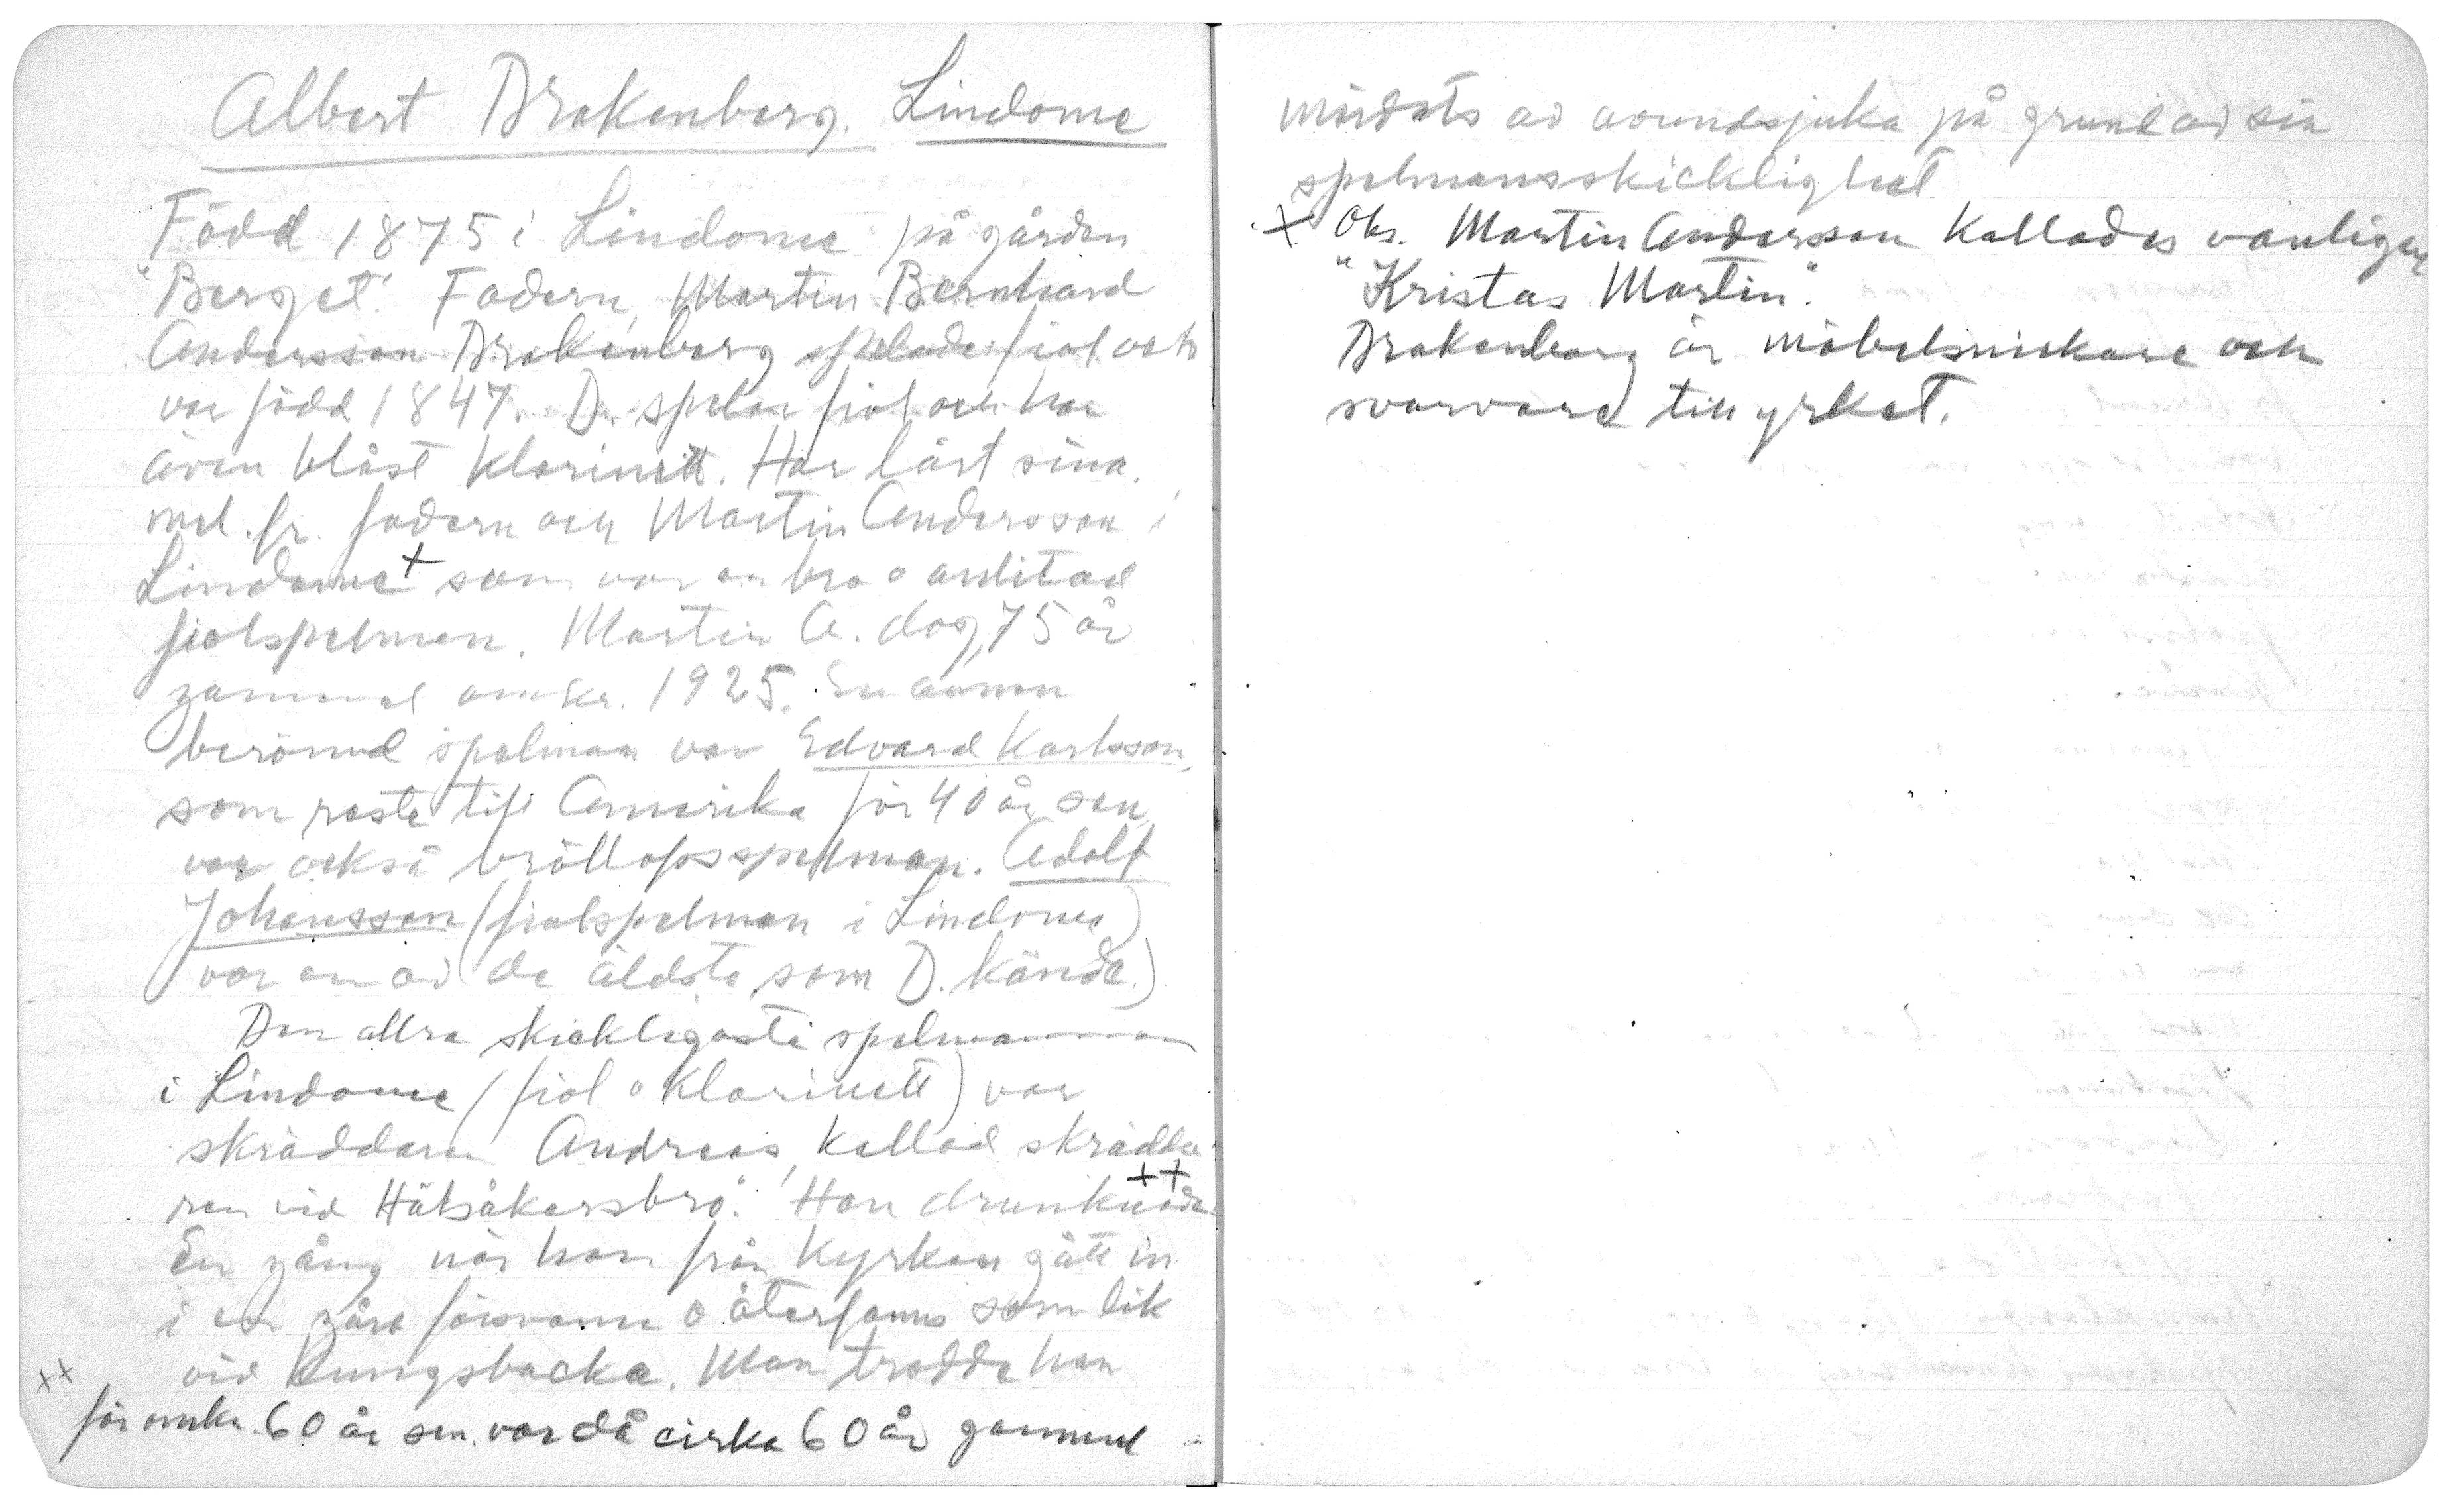 Albert Drakenberg. Lindome
Född 1875 i Lindome på gården
"Berget". Fadern, Martin Bernhard
Andersson Drakenberg spelade fiol och
var född 1847. D. spelar fiol och har
även blåst klarinett. Har lärt sina
mel. fr. fadern och Martin Andersson i
Lindome + som var en bra o anlitad
fiolspelman. Martin A. dog, 75 år
gammal omkr. 1925. En annan
berömd spelman var Edvard Karlsson,
som reste till Amerika för 40 år sen,
var också bröllopsspelman. Adolf
Johansson (fiolspelman i Lindome)
var en av de äldsta som D. kände.)
Den allra skickligaste spelmannen
i Lindome (fiol o klarinett) var
skräddaren Andreas, kallad skrädda-
ren vid Hälsåkersbro". Han drunknade ++
En gång när han från kyrkan gått in
i en gård försvann o återfanns som lik
vid Kungsbacka. Man trodde han
xx
för omkr. 60 år sen. var då cirka 60 år gammal
mördats av avundsjuka på grund av sin
spelmansskicklighet
+ Obs. Martin Andersson kallades vanligen
"Kristas Martin".
Drakenberg är möbelsnickare och
svarvare till yrket.